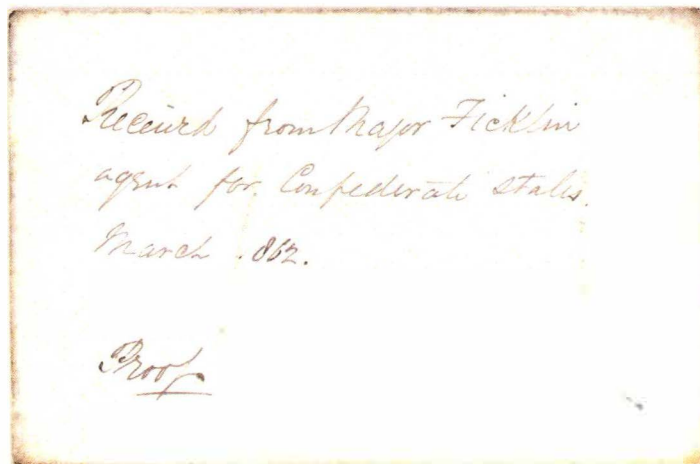 Received from Major Ficklin
agent for Confederate States.
March 1862.
Proof